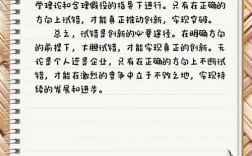 学理论和合理假设的指导下进行。只有在正确的
方向上试错，才能真正推动创新，实现突破。
总之，试错是创新的必要途径。在明确方向
的前提下，大胆试错，才能实现真正的创新。无
论是个人还是企业，只有在正确的方向上不断试
错，才能在激烈的竞争中立于不败之地，实现持
续的发展和进步。